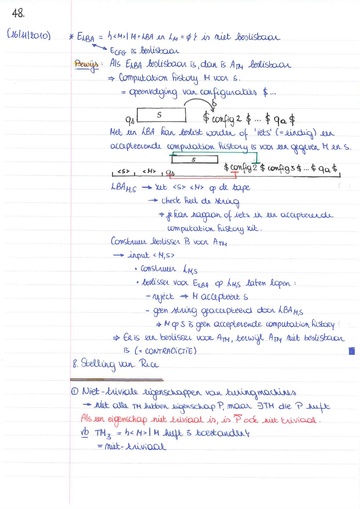 48.
(26/11/2010) * E_LBA = {<M> | M = LBA en L_M = ∅} is niet beslisbaar
↳ E_CFG is beslisbaar
Bewijs: Als E_LBA beslisbaar is, dan is A_TM beslisbaar
⇒ Computation history M voor s.
= opeenvolging van configuraties $ ...
q_s s $ config 2 $ ... $ q_a $
Met een LBA kan beslist worden of 'iets' (= eindig) een
accepterende computation history is voor een gegeven M en s.
s
<s> <M> q_s $ config 2 $ config 3 $ ... $ q_a $
LBA_M,S → zet <s> <M> op de tape
→ check heel de string
→ je kan nagaan of iets in een accepterende
computation history zit.
Construeer beslisser B voor A_TM
→ input <M,s>
• construeer L_M,S
• beslisser voor E_LBA op L_M,S laten lopen :
- reject → M accepteert s
- geen string geaccepteerd door LBA_M,S
→ M op S is geen accepterende computation history !
⇒ Er is een beslisser voor A_TM, terwijl A_TM niet beslisbaar
is (= CONTRADICTIE)
8. Stelling van Rice
① Niet-triviale eigenschappen van turingmachines
→ niet alle TM hebben eigenschap P, maar ∃TM die P heeft
Als een eigenschap niet triviaal is, is P̄ ook niet triviaal.
vb TM_3 = {<M> | M heeft 3 toestanden}
= niet-triviaal